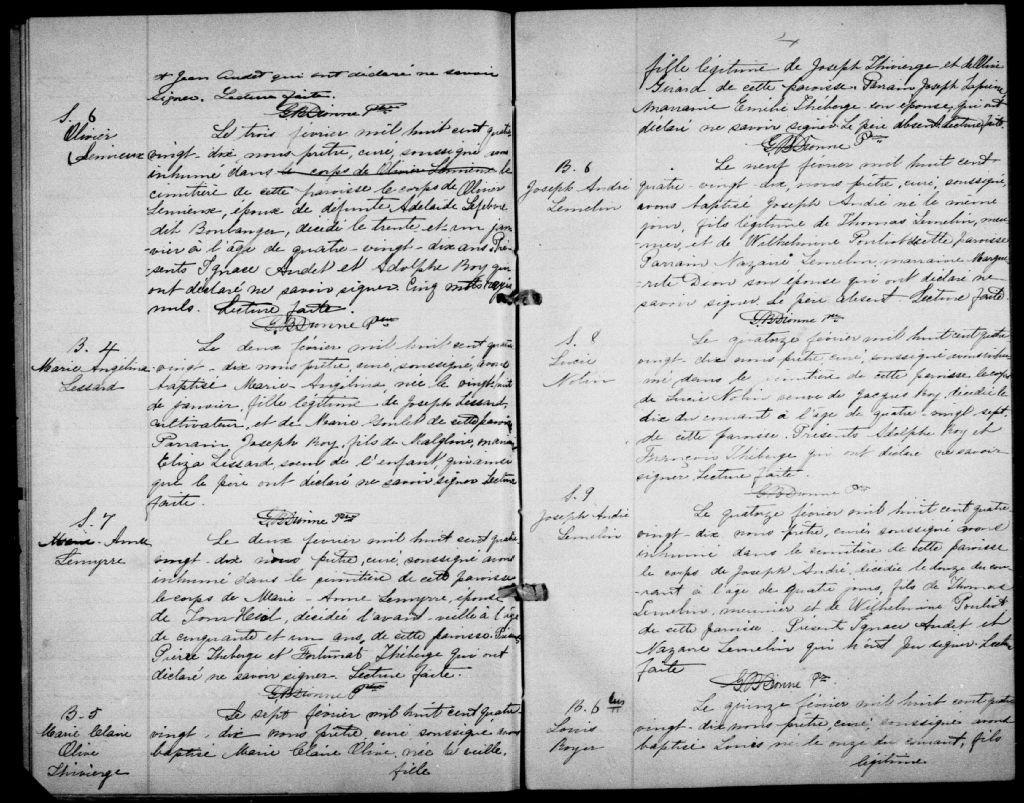 & Jean Audet qui ont déclaré ne savoir
signer. Lecture faite.
G.B. Dionne Ptre
S. 6
Olivier
Lemieux
Le trois février mil huit cent quatre
vingt-dix nous prêtre, curé, soussigné avons
inhumé dans le corps de Olivier Lemieux le
cimitière de cette paroisse le corps de Olivier
Lemieux, époux de défunte Adelaide Lefebvre
dit Boulanger, décidé le trente-et-un jan
vier à l'âge de quatre-vingt-dix ans Pré
sents Ignace Audet et Adolphe Roy qui
ont déclaré ne savoir signer. Cinq mots rayés
nuls. Lecture faite.
G.B. Dionne Ptre
B. 4
Marie Angélina
Lessard
Le deux février mil huit cent quatre
vingt-dix nous prêtre, curé, soussigné, avons
baptisé Marie-Angélina, née le vingt-huit
de janvier, fille légitime de Joseph Lessard,
cultivateur, et de Marie Goulet de cette paroisse
Parrain Joseph Roy, fils de marraine
Eliza Lessard, soeur de l'enfant qui ainsi
que le père ont déclaré ne savoir signer Lecture
faite.
G.B. Dionne Ptre
S. 7
Marie-Anne
Lemyrre
Le deux février mil huit cent quatre
vingt-dix nous prêtre, curé, soussigné avons
inhumé dans le cimitière de cette paroisse
le corps de Marie-Anne Lemyrre, épouse
de décidée l'avant-veille à l'âge
de cinquante et un ans, de cette paroisse. Présents
Pierre Théberge et Fortunat Théberge qui ont
déclaré ne savoir signer. Lecture faite.
G.B. Dionne Ptre
B-5
Marie Claire
Olive
Thivierge
Le sept février mil huit cent quatre
vingt-dix nous prêtre, curé soussigné avons
baptisé Marie Claire Olive, née la veille,
fille
fille légitime de Joseph Thivierge et de Olive
Gerard de cette paroisse. Parrain Joseph
Marraine Emélie Théberge son épouse, qui ont
déclaré ne savoir signer. Le père absent. Lecture faite.
G.B. Dionne Ptre
B. 6
Joseph André
Lemelin
Le neuf février mil huit cent
quatre-vingt-dix, nous prêtre, curé, soussigné,
avons baptisé Joseph André né le même
jour, fils légitime de Thomas Lemelin, meu
nier, et de Wilhelmine Pouliot de cette paroisse
Parrain Nazaire Lemelin, marraine Margue
rite Dion son épouse qui ont déclaré ne
savoir signer. Le père absent Lecture faite.
G.B. Dionne Ptre
S. 8
Lucie
Nolin
Le quatorze février mil huit cent quatre
vingt-dix nous prêtre, curé, soussigné avons inhu
mé dans le cimitière de cette paroisse le corps
de Lucie Nolin veuve de Jacques Roy, décidée le
dix du courant à l'âge de quatre-vingt-sept
de cette paroisse. Présents Adolphe Roy et
François Théberge qui ont déclaré ne savoir
signer. Lecture faite.
G.B. Dionne Ptre
S. 9
Joseph-André
Lemelin
Le quatorze février mil huit cent quatre
vingt-dix nous prêtre, curé, soussigné avons
inhumé dans le cimitière de cette paroisse
le corps de Joseph André, décidé le douze du cou
rant à l'âge de quatre jours, fils de Thomas
Lemelin, meunier et de Wilhelmine Pouliot
de cette paroisse. Présent Ignace Audet et
Nazaire Lemelin qui n'ont pu signer. Lecture
faite
G.B. Dionne Ptre
B. 6 bis
Louis
Royer
Le quinze février mil huit cent quatre
vingt-dix nous prêtre, curé, soussigné avons
baptisé Louis né le onze du courant, fils
légitime